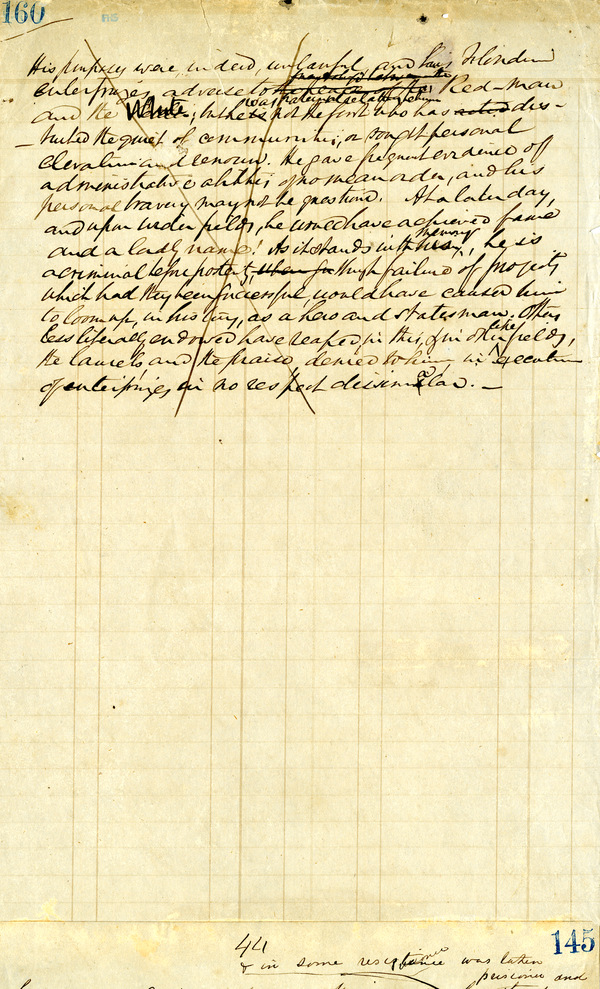 160
His purposes were, indeed, unlawful, and his Florida
enterprizes, adverse to the peace of the Red-man
and the White; but he was not the first who has acted dis-
-turbed the quiet of communities, or sought personal
elevation and renown. He gave frequent evidence of
administrative abilities of no mean order, and his
personal bravery may not be questioned. At a later day,
and upon wider fields, he would have achieved fame
and a lasting name! As it stands with memory, he is
a criminal before posterity, through failure of projects
which had they been successful, would have caused him
to loom up, in his day, as a hero and statesman. Others
less liberally endowed have reaped, in this, & in other like fields,
the laurels and the praise denied to him, in execution
of enterprizes, in no respect dissimilar. —
44
145
& in some was taken
prisoner and